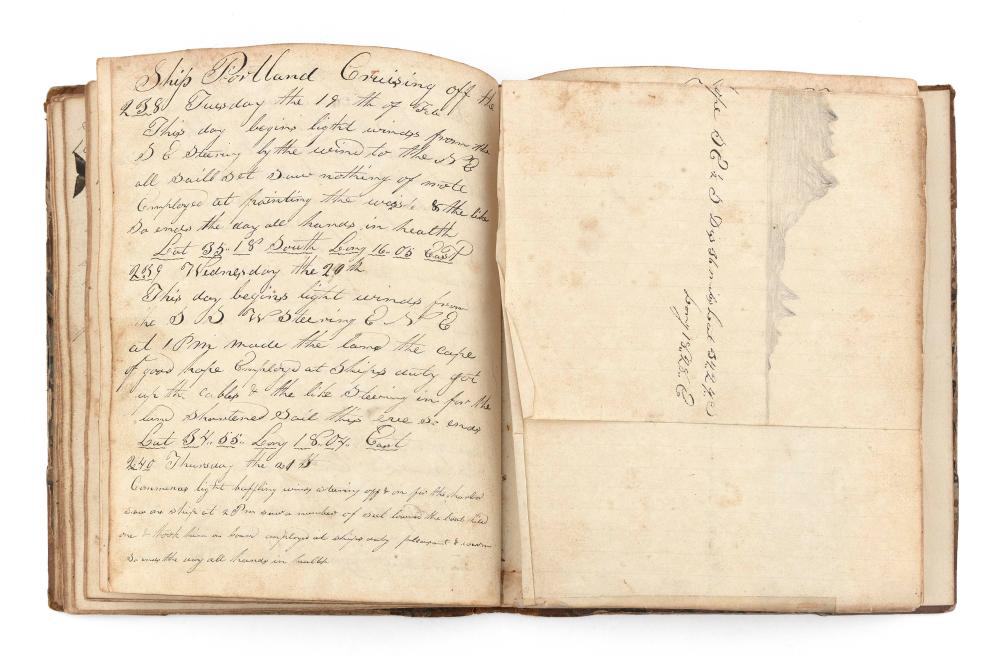 Ship Portland Cruising off the
238 Tuesday the 19th of Feb
This day begins light winds from the
S E Steering by the wind to the N E
all Saill Set Saw nothing of note
Employed at painting the & the like
So ends the day all hands in health
Lat 35..18 South Long 16..05 East
239 Wednesday the 20th
This day begins light winds from
the S S W Steering E N E
at 1 Pm made the land the cape
of good hope Employed at Ships duty got
up the cables & the like Steering in for the
land Shortened Sail this eve So ends
Lat 34..55.. Long 18.04. East
240 Thursday the 21st
Commences light baffling winds steering off & on for the harbor
saw a ship at 2 Pm saw a number of seal lowered the boat killed
one & took him on board employed at ships duty pleasant & warm
So ends the day all hands in health
Cape S E & S Dis 36 miles Lat 34
Long 18 E